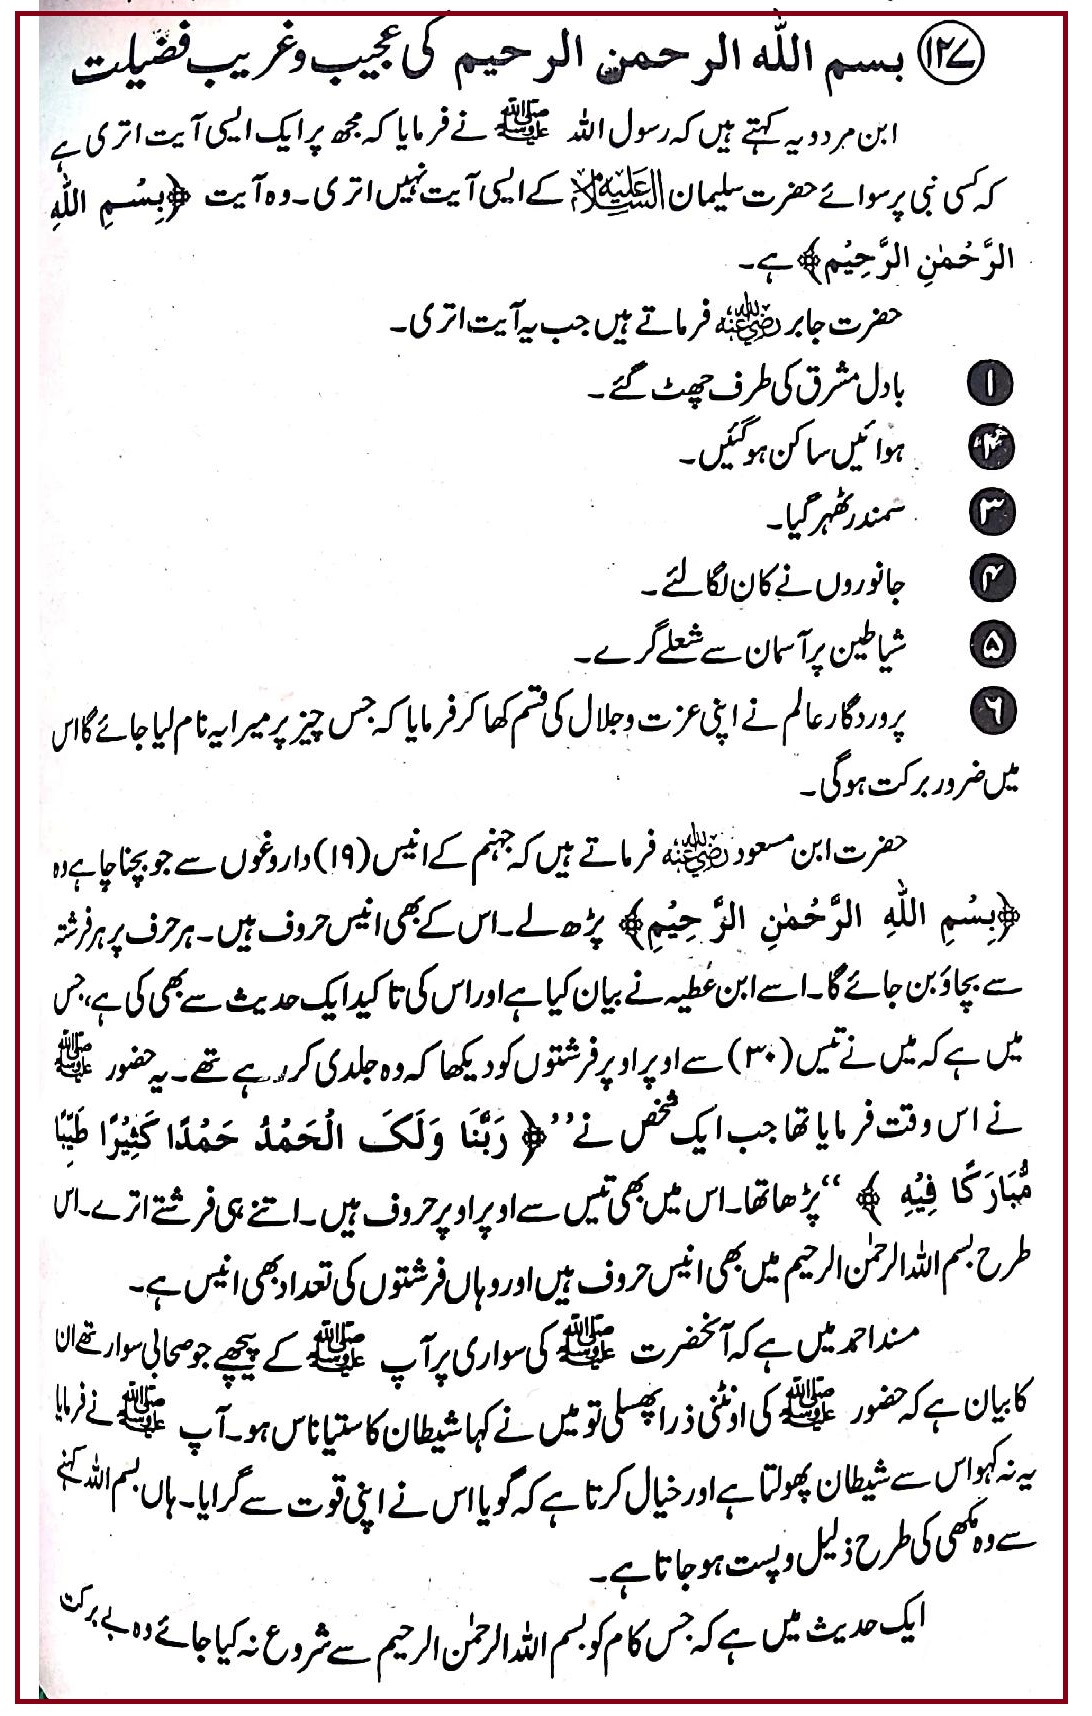 ۱۲۷ بسم اللہ الرحمن الرحیم کی عجیب و غریب فضیلت
ابن مردویہ کہتے ہیں کہ رسول اللہ ﷺ نے فرمایا کہ مجھ پر ایک ایسی آیت اتری ہے
کہ کسی نبی پر سوائے حضرت سلیمان علیہ السلام کے ایسی آیت نہیں اتری۔ وہ آیت ﴿بِسْمِ اللّٰهِ
الرَّحْمٰنِ الرَّحِیْمِ﴾ ہے۔
حضرت جابر رضی اللہ عنہ فرماتے ہیں جب یہ آیت اتری۔
۱ بادل مشرق کی طرف چھٹ گئے۔
۲ ہوائیں ساکن ہوگئیں۔
۳ سمندر ٹھہر گیا۔
۴ جانوروں نے کان لگا لئے۔
۵ شیاطین پر آسمان سے شعلے گرے۔
۶ پروردگار عالم نے اپنی عزت و جلال کی قسم کھا کر فرمایا کہ جس چیز پر میرا یہ نام لیا جائے گا اس
میں ضرور برکت ہوگی۔
حضرت ابن مسعود رضی اللہ عنہ فرماتے ہیں کہ جہنم کے انیس (۱۹) داروغوں سے جو بچنا چاہے وہ
﴿بِسْمِ اللّٰهِ الرَّحْمٰنِ الرَّحِیْمِ﴾ پڑھ لے۔ اس کے بھی انیس حروف ہیں۔ ہر حرف پر ہر فرشتہ
سے بچاؤ بن جائے گا۔ اسے ابن عطیہ نے بیان کیا ہے اور اس کی تاکید ایک حدیث سے بھی کی ہے، جس
میں ہے کہ میں نے تیس (۳۰) سے اوپر اوپر فرشتوں کو دیکھا کہ وہ جلدی کر رہے تھے۔ یہ حضور ﷺ
نے اس وقت فرمایا تھا جب ایک شخص نے ’’﴿ رَبَّنَا وَلَکَ الْحَمْدُ حَمْدًا کَثِیْرًا طَیِّبًا
مُّبَارَکًا فِیْهِ ﴾‘‘ پڑھا تھا۔ اس میں بھی تیس سے اوپر اوپر حروف ہیں۔ اتنے ہی فرشتے اترے۔ اس
طرح بسم اللہ الرحمٰن الرحیم میں بھی انیس حروف ہیں اور وہاں فرشتوں کی تعداد بھی انیس ہے۔
مسند احمد میں ہے کہ آنحضرت ﷺ کی سواری پر آپ ﷺ کے پیچھے جو صحابی سوار تھے ان
کا بیان ہے کہ حضور ﷺ کی اونٹنی ذرا پھسلی تو میں نے کہا شیطان کا ستیاناس ہو۔ آپ ﷺ نے فرمایا
یہ نہ کہو اس سے شیطان پھولتا ہے اور خیال کرتا ہے کہ گویا اس نے اپنی قوت سے گرایا۔ ہاں بسم اللہ کہنے
سے وہ مکھی کی طرح ذلیل و پست ہو جاتا ہے۔
ایک حدیث میں ہے کہ جس کام کو بسم اللہ الرحمٰن الرحیم سے شروع نہ کیا جائے وہ بے برکت